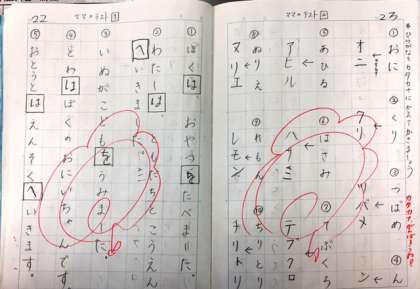 23
ママのテスト
ひらがなをカタカナにかえてかきましょう
①おに ②くり ③つばめ ④ん
オニ クリ ツバメ ン
⑤あひる ⑥はさみ ⑦てぶくろ
アヒル ハサミ テブクロ
⑧ぬりえ ⑨れもん ⑩ちりとり
ヌリエ レモン チリトリ
22
ママのテスト
①ぼくは おやつをたべました。
②わたしは ともだちとこうえん
へいきました
③いぬがこどもをうみました。
④とわはぼくのおにいちゃんです。
⑤おとうとはえんそくへいきます。